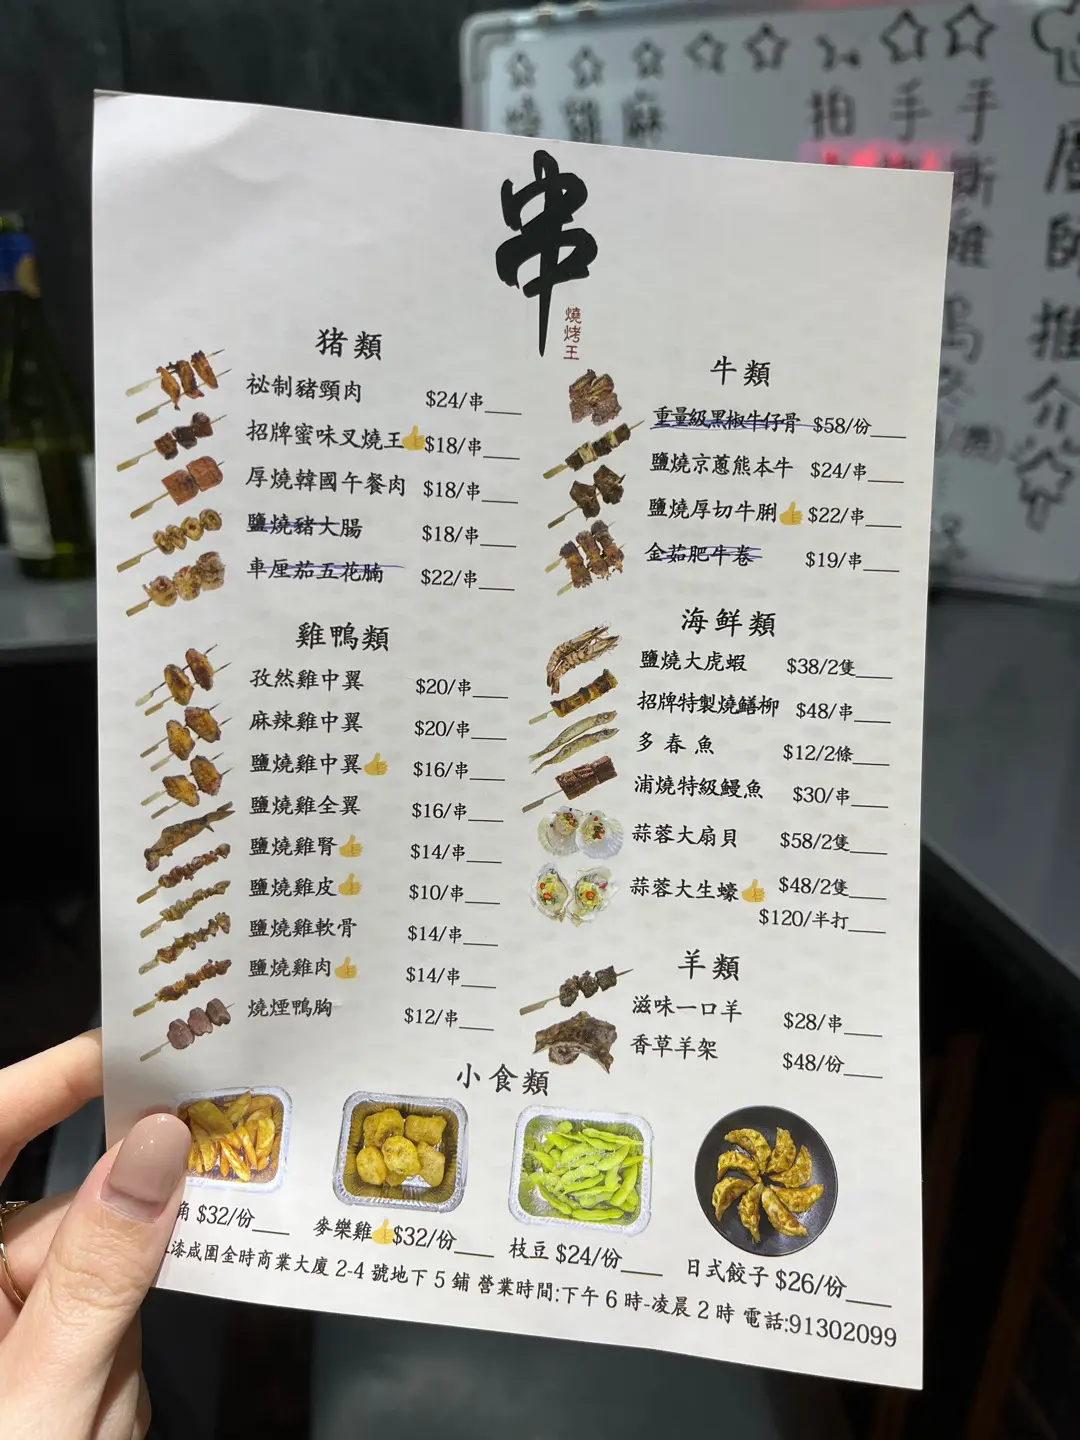 串
燒烤王
猪類
祕制豬頸肉 $24/串
招牌蜜味叉燒王 $18/串
厚燒韓國午餐肉 $18/串
鹽燒豬大腸 $18/串
車厘茄五花腩 $22/串
雞鴨類
孜然雞中翼 $20/串
麻辣雞中翼 $20/串
鹽燒雞中翼 $16/串
鹽燒雞全翼 $16/串
鹽燒雞腎 $14/串
鹽燒雞皮 $10/串
鹽燒雞軟骨 $14/串
鹽燒雞肉 $14/串
燒煙鴨胸 $12/串
牛類
重量級黑椒牛仔骨 $58/份
鹽燒京蔥熊本牛 $24/串
鹽燒厚切牛脷 $22/串
金茹肥牛卷 $19/串
海鮮類
鹽燒大虎蝦 $38/2隻
招牌特製燒鱔柳 $48/串
多春魚 $12/2條
浦燒特級鰻魚 $30/串
蒜蓉大扇貝 $58/2隻
蒜蓉大生蠔 $48/2隻
$120/半打
羊類
滋味一口羊 $28/串
香草羊架 $48/份
小食類
角 $32/份
麥樂雞 $32/份
枝豆 $24/份
日式餃子 $26/份
漆咸圍金時商業大廈 2-4 號地下 5 鋪 營業時間:下午 6 時-凌晨 2 時 電話:91302099
拍 手 手
雞 麻
斯 雞
廚師推介